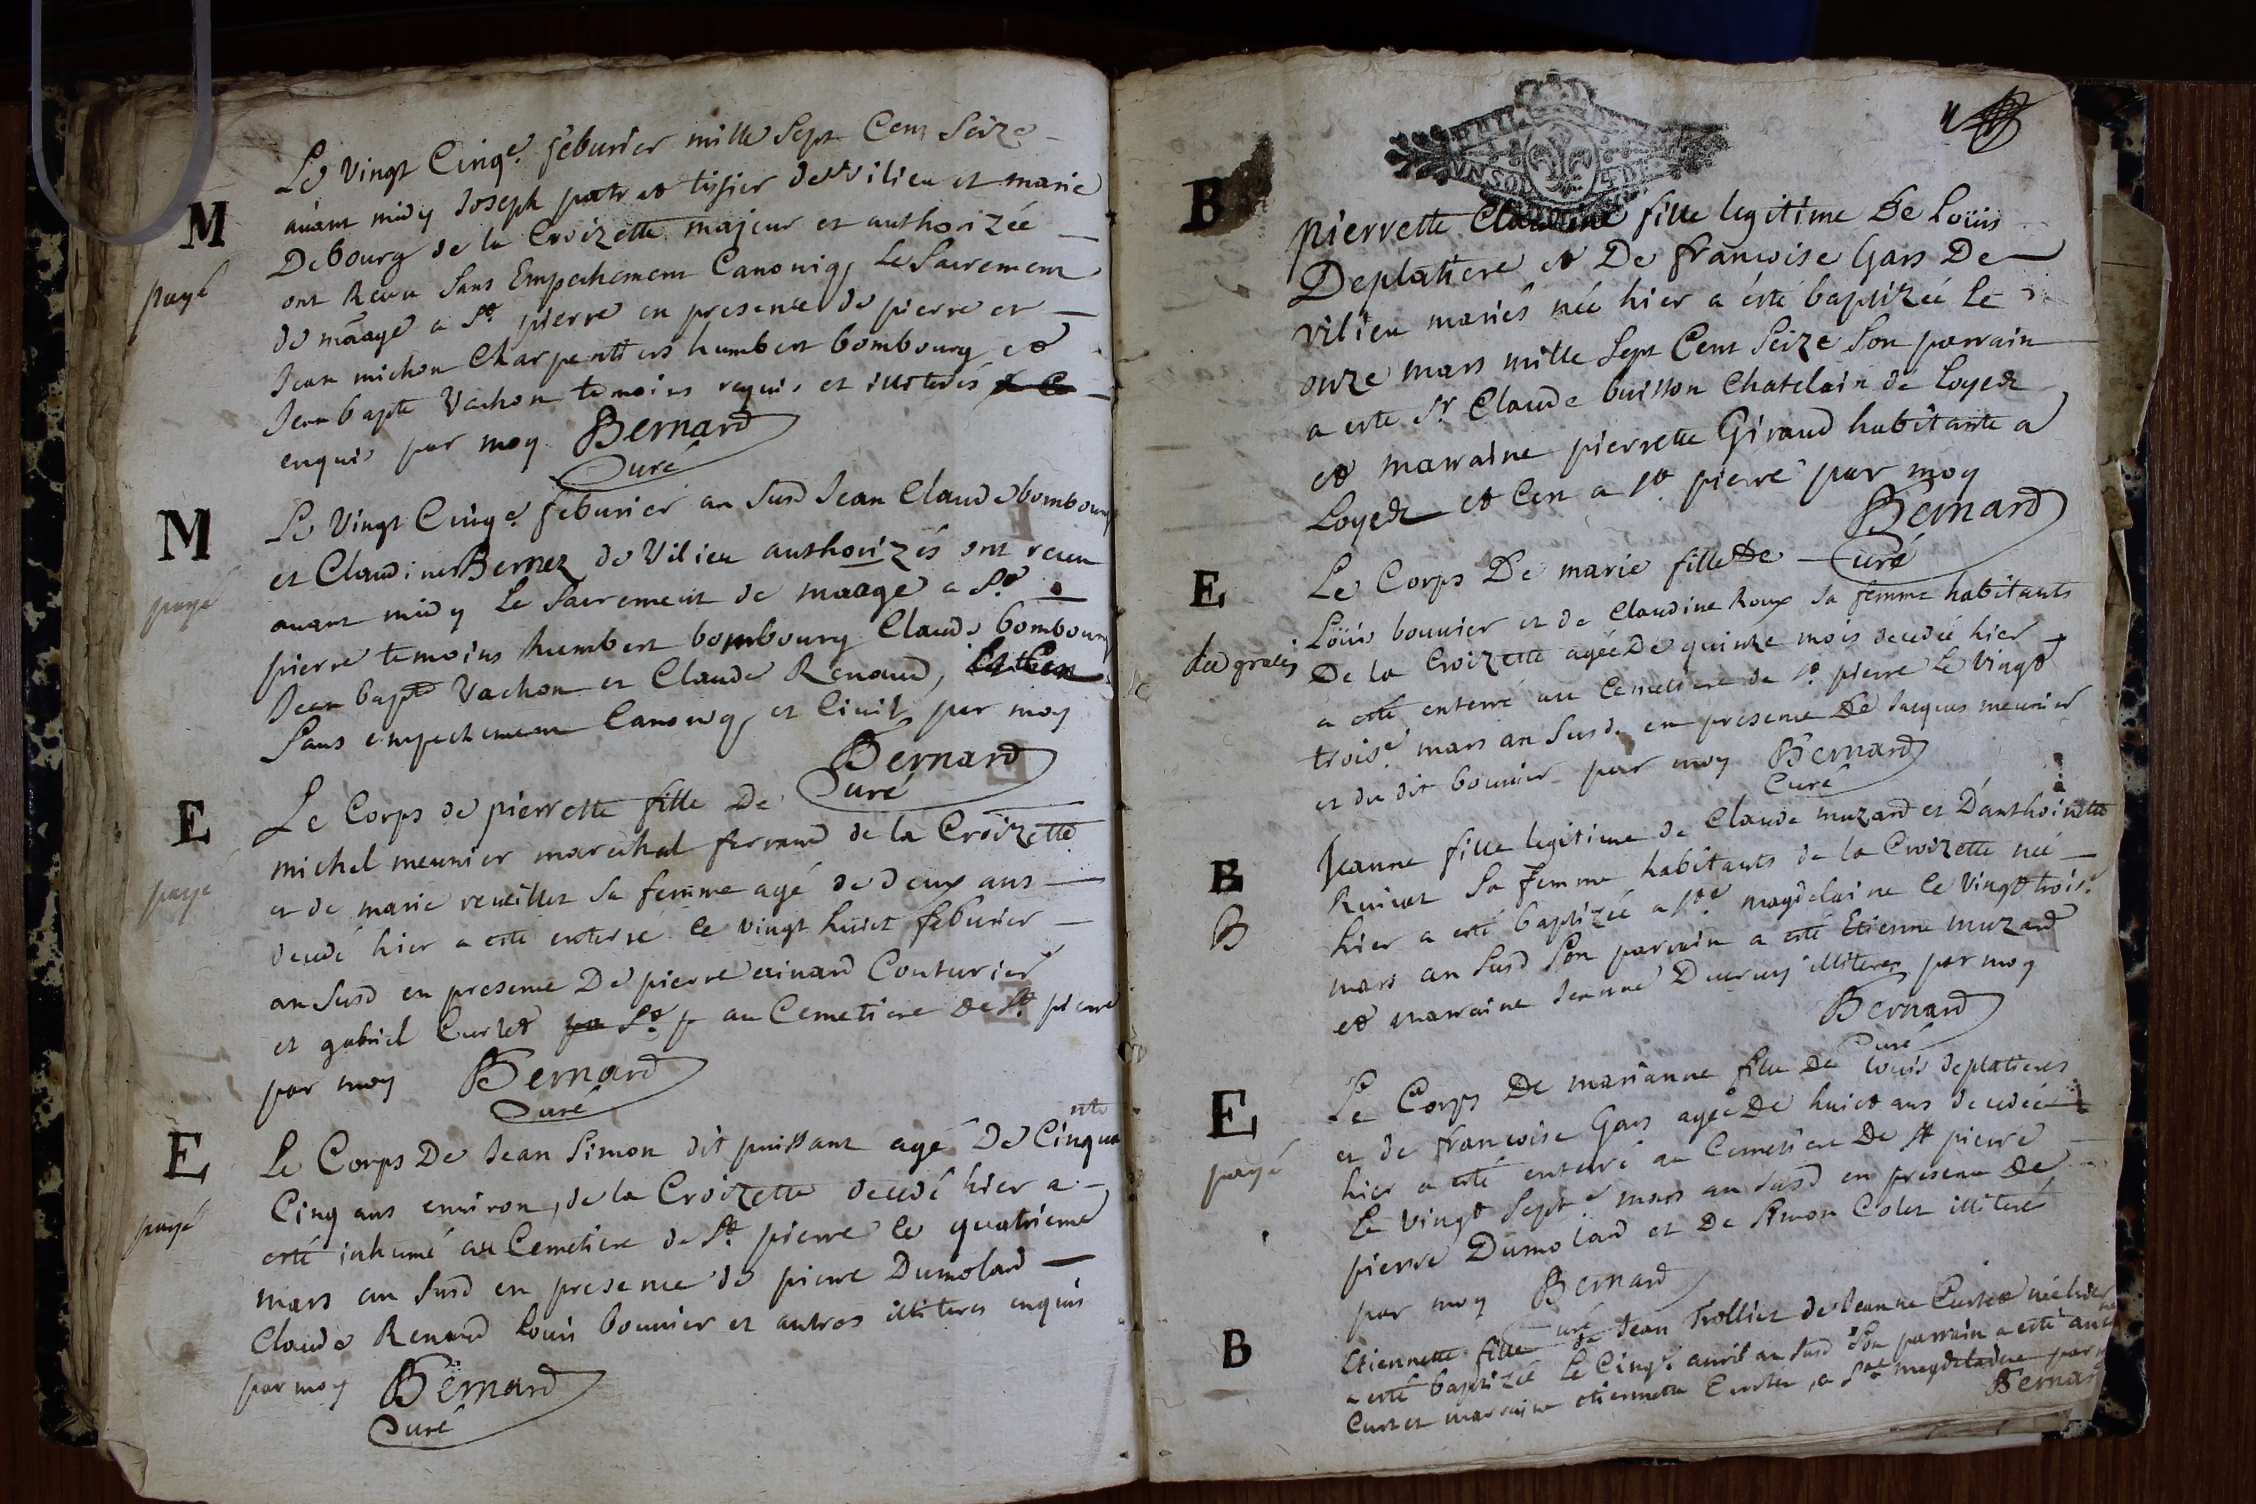 Le Vingt Cinqe. feburier mille Sept Cent Seize
M
avant midy Joseph patret tissier de Vilieu et marie
Debourg de la Croizette majeur et authorizée
payé
ont Receu Sans Empechement Canoniq, Le Sacrement
de maage a St. pierre en presence de pierre et
Jean michon Charpentiers humbert bombourg et
Jean bapte Vachon temoins requis et illiterés
enquis par moy Bernard
Curé
M
Le Vingt Cinqe. feburier an Susd Jean Claude bombourg
et Claudine Bernez de Vilieu authorizés ont receu
payé
avant midy Le Sacrement de maage a St.
pierre temoins humbert bombourg Claude bombourg
Jean bapte Vachon et Claude Renaud,
Sans empechement Canoniq, et Civil par moy
Bernard
Curé
E
Le Corps de pierrette fille De
michel meunier marechal ferrand de la Croizette
payé
et de marie reveillet Sa femme agé de deux ans
decedé hier a esté enterré le vingt huict feburier
an Susd en presence De pierre Couturier
et gabriel Curlet au Cemetiere de St. pierre
par moy Bernard
Curé
E
Le Corps De Jean Simon dit puissant agé De Cinqua
nte
Cinq ans environ, de la Croizette decedé hier a
payé
esté inhumé au Cemetiere de St. pierre le quatrieme
mars an Susd en presence de pierre Dumolard
Claude Renaud Louis bouvier et autres illiteres enquis
par moy Bernard
Curé
B
pierrette Claudine fille legitime De Loüis
Deplatiere et De francoise Gars De
Vilieu mariés née hier a ésté baptizée Le
onze mars mille Sept Cent Seize Son parrain
a esté Sr Claude buisson Chatelain de Loyer
et marraine pierrette Giraud habitante a
Loyer et Cen a St. pierre par moy
Bernard
Curé
E
Le Corps De marie fille De
Loüis bouvier et de Claudine Roux Sa femme habitants
De la Croizette agée De quinze mois decedée hier
a esté enterré au Cemetiere de St. pierre Le vingt
troise. mars an Susd. en presence De Jacques meunier
et du dit bouvier par moy Bernard
Curé
B
Jeanne fille legitime de Claude muzard et D'anthoinette
Sa femme habitants de la Croizette née
B
hier a esté baptizée a Ste. magdelaine le Vingt trois.
mars an Susd Son parrain a esté Etienne muzard
et marraine Jeanne illiteres par moy
Bernard
Curé
E
Le Corps De marianne fille De Louis deplatieres
et de francoise Gars agée De huict ans decedée
payé
hier a esté enterré au Cemetiere De St pierre
Le vingt Septe. mars an Susd en presence De
pierre Dumolard et De Simon Colet illiteré
par moy Bernard
Curé
B
Etiennette fille de Jean Trollier de Jeanne Curtet née hier
a esté baptizée Le Cinqe. avril an Susd Son parrain a esté
Curtet marraine etiennette Curtet, a Ste magdelaine par
Bernar